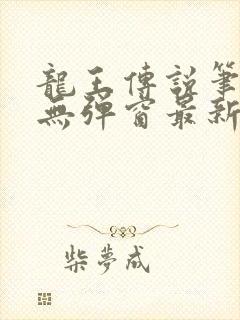 龍王傳說筆
無彈窗最新
柴夢成